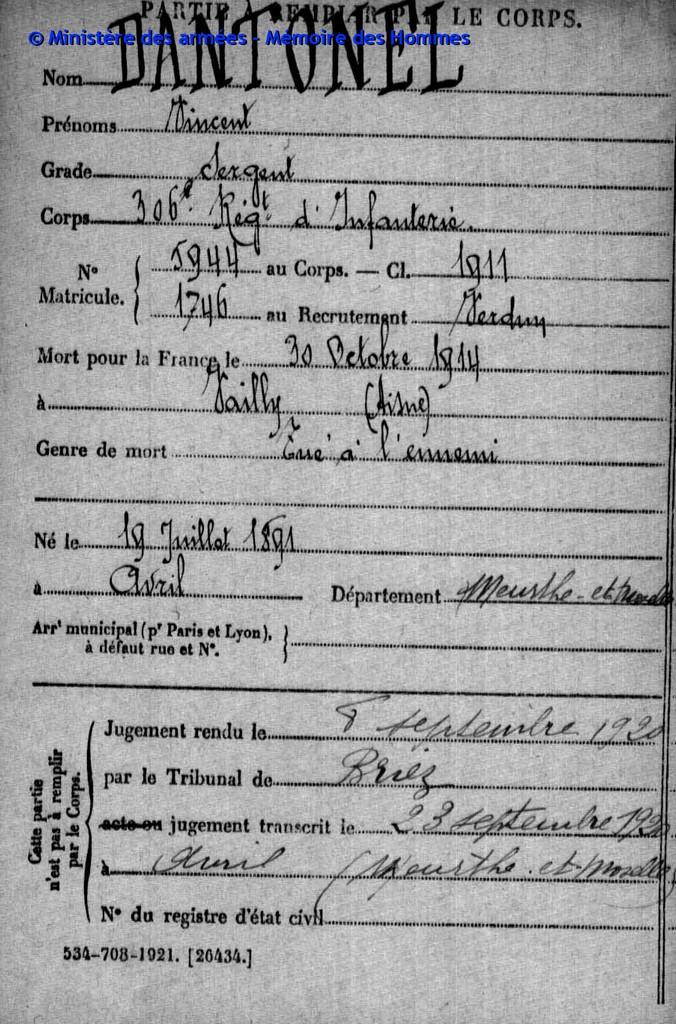 PARTIE À REMPLIR PAR LE CORPS.
© Ministère des armées - Mémoire des Hommes
Nom DANTONEL
Prénoms Vincent
Grade Sergent
Corps 306e Régt d'Infanterie.
N° Matricule. { 5944 au Corps. — Cl. 1911
1746 au Recrutement Verdun
Mort pour la France le 30 Octobre 1914
à Vailly (Aisne)
Genre de mort Tué à l'ennemi
Né le 19 Juillet 1891
à Avril Département Meurthe-et-Moselle
Arrt municipal (pr Paris et Lyon), }
à défaut rue et N°.
Cette partie n'est pas à remplir par le Corps. {
Jugement rendu le 8 septembre 1920
par le Tribunal de Briez
acte ou jugement transcrit le 23 septembre 1920
à Avril (Meurthe-et-Moselle)
N° du registre d'état civil
534-708-1921. [26434.]